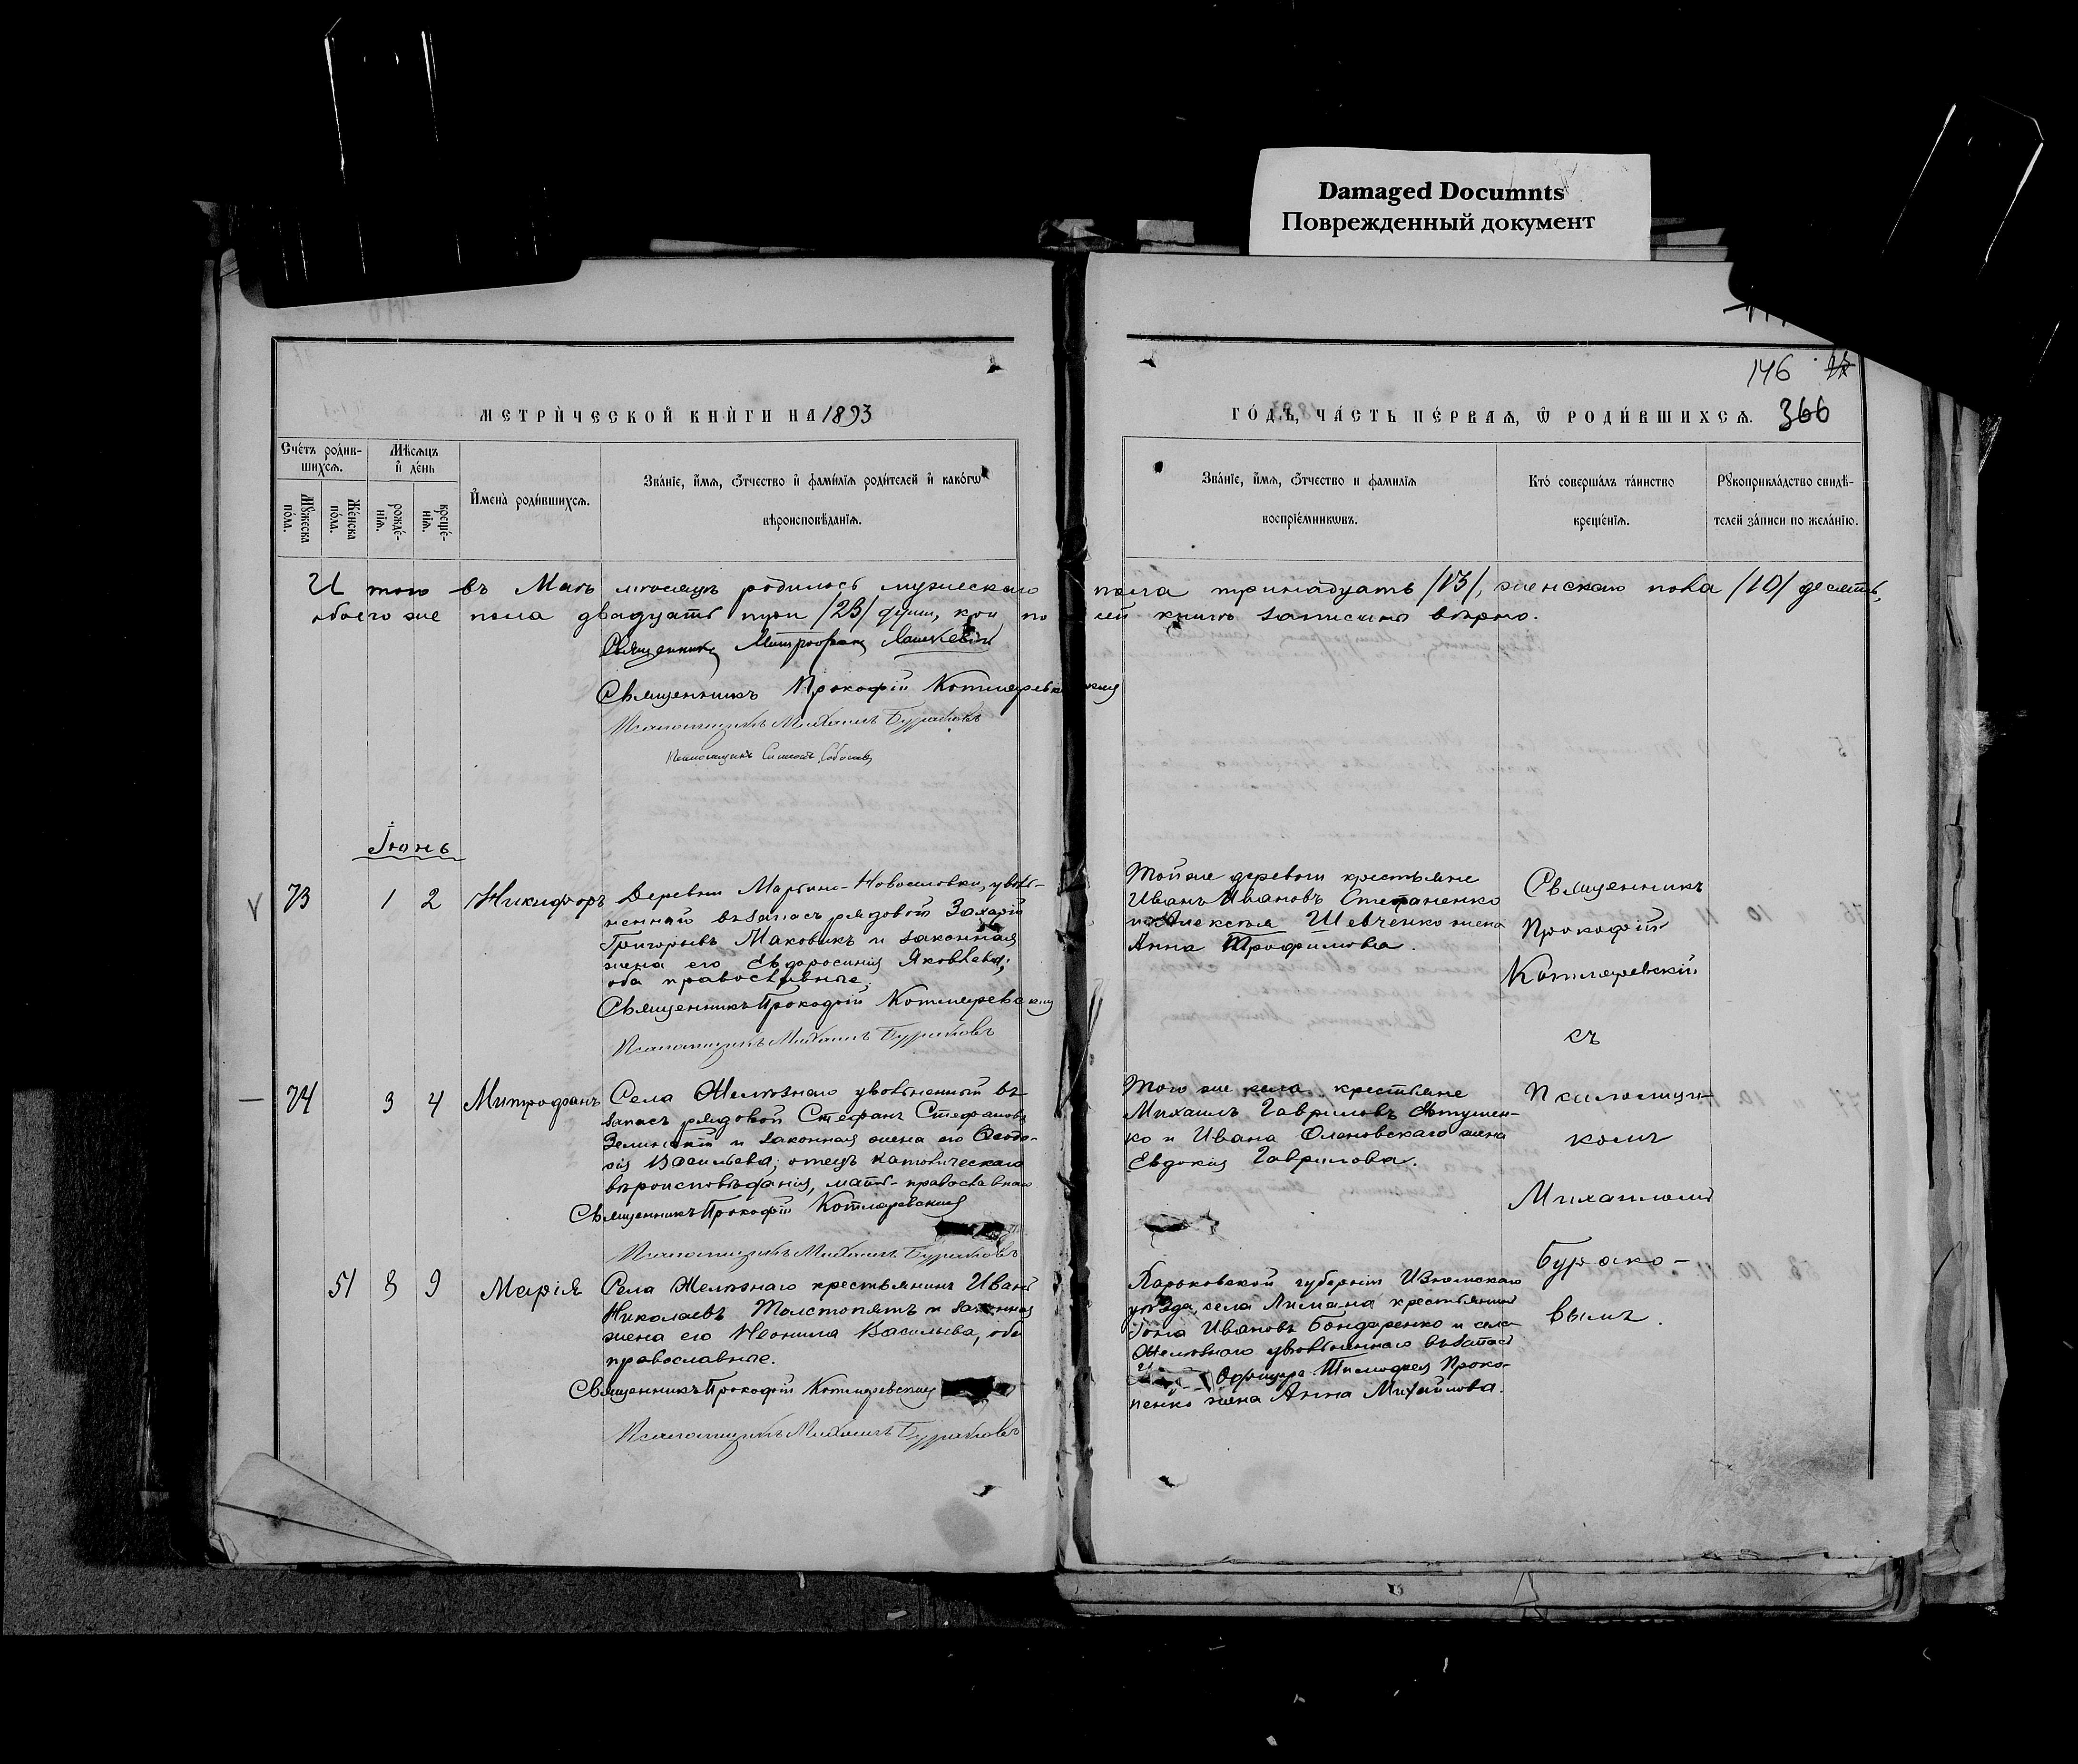 Damaged Documnts
Поврежденный документ
146
366
МЕТРИЧЕСКОЙ КНИГИ НА 1893
ГОДЪ, ЧАСТЬ ПЕРВАЯ, Ѡ РОДИВШИХСЯ.
Счетъ родив-
шихся.
Мужеска
пола.
Женска
пола.
Мѣсяцъ
и день
рожде-
нія.
креще-
нія.
Имена родившихся.
Званіе, имя, отчество и фамилія родителей и какогѡ
вѣроисповѣданія.
Званіе, имя, отчество и фамилія
воспріемниковъ.
Кто совершалъ таинство
крещенія.
Рукоприкладство свидѣ-
телей записи по желанію.
И того въ Маѣ мѣсяцѣ родилось мужескаго пола тринадцать /13/, женскаго пола /10/ десять,
обоего же пола двадцать три /23/ души, кои по сей книгѣ записаны вѣрно.
Священникъ Митрофанъ
Священникъ Прокофій Котляревскій
Псаломщикъ Михаилъ Бураковъ
Псаломщикъ
Іюнь
73 1 2 Никифоръ
Деревни Марьино-Новоселовки, уволь-
ненный въ запасъ рядовой Захарій
Григорьевъ Маковикъ и законная
жена его Ефросинія Яковлева;
оба православные.
Священникъ Прокофій Котляревскій
Псаломщикъ Михаилъ Бураковъ
Той же деревни крестьяне
Иванъ Ивановъ Степаненко
и Алексѣя Шевченко жена
Анна Трофимова.
74 3 4 Митрофанъ
Села Желѣзнаго уволенный въ
запасъ рядовой Стефанъ Стефановъ
Зелинскій и законная жена его Ѳеодо-
сія Васильева; отецъ католическаго
вѣроисповѣданія, мать - православнаго
Священникъ Прокофій Котляревскій
Псаломщикъ Михаилъ Бураковъ
Того же села крестьяне
Михаилъ Гавриловъ
ко и Ивана Олановскаго жена
Евдокія Гаврилова.
51 8 9 Марія
Села Желѣзнаго крестьянинъ Иванъ
Николаевъ Толстопятъ и законная
жена его Неонила Васильева, оба
православные.
Священникъ Прокофій Котляревскій
Псаломщикъ Михаилъ Бураковъ
Харьковской губерніи Изюмскаго
уѣзда, села Лимана крестьянинъ
Іона Ивановъ Бондаренко и села
Желѣзнаго уволеннаго въ запасъ
Офицера Тимофея Проко-
пенко жена Анна Михайлова.
Священникъ
Прокофій
Котляревскій
съ
Псаломщи-
комъ
Михаиломъ
Бурако-
вымъ.